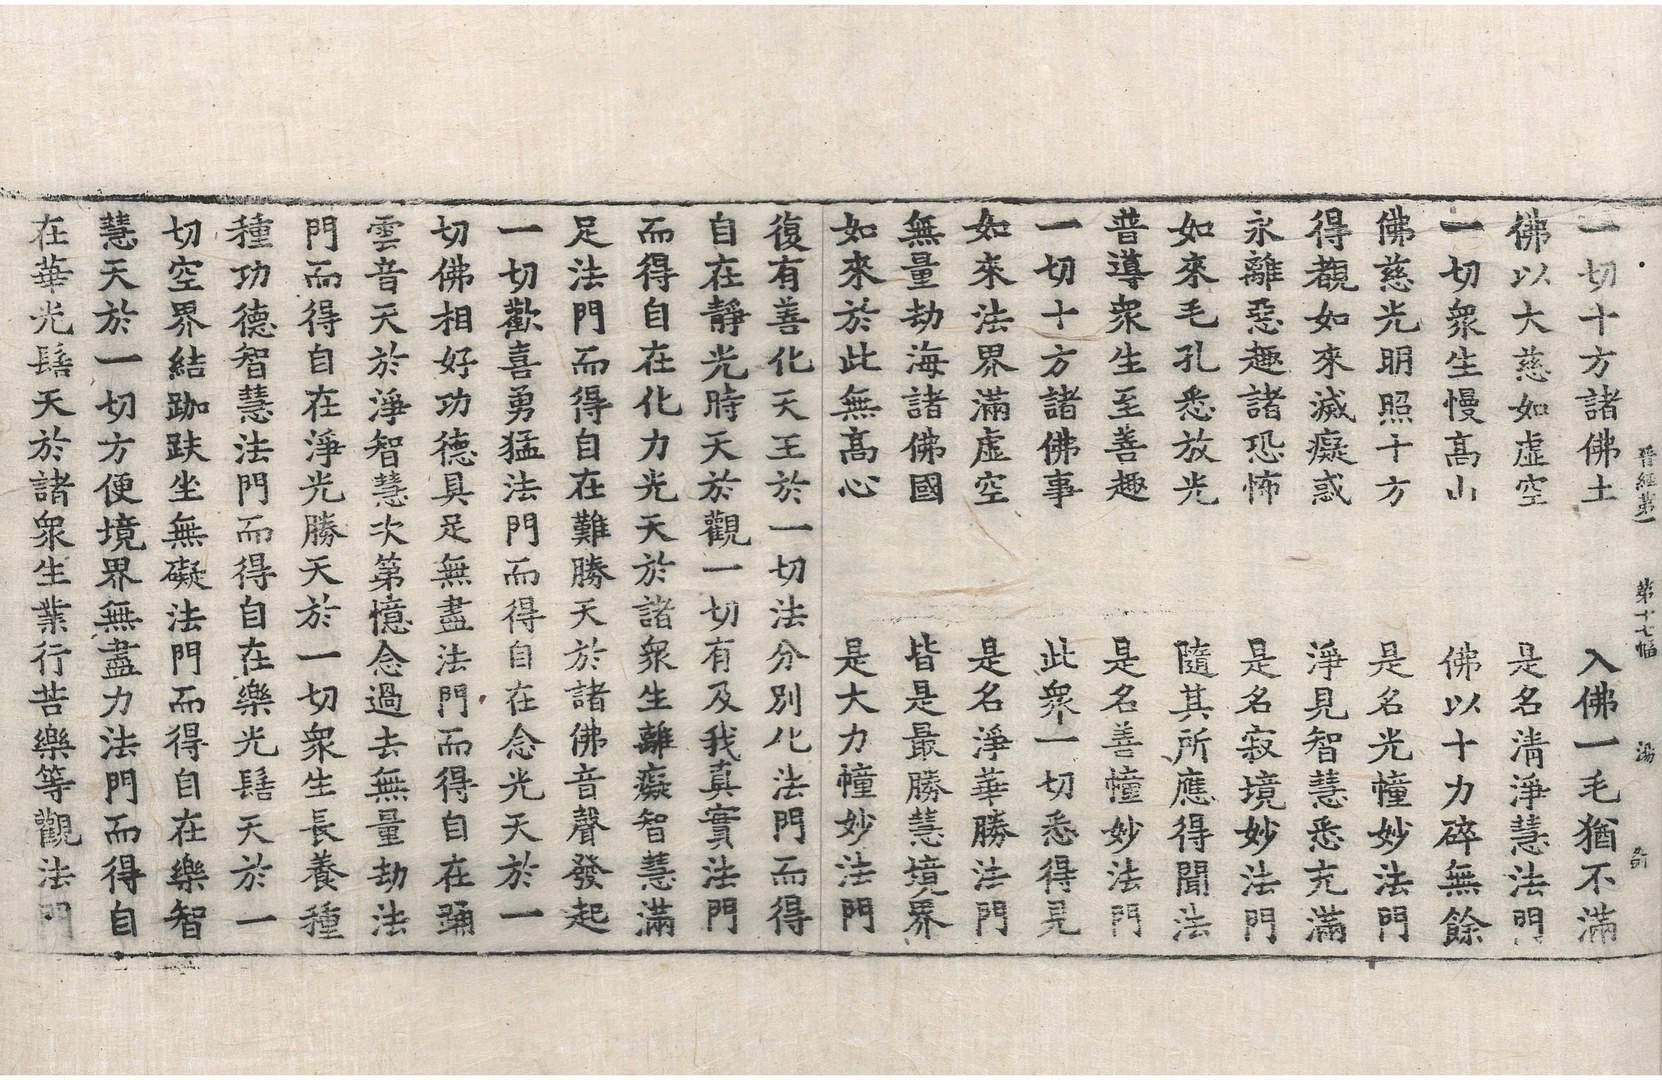 晉經第一　第十七幅　湯
一切十方諸佛土　入佛一毛猶不滿
佛以大慈如虛空　是名清淨慧法門
一切衆生慢高山　佛以十力碎無餘
佛慈光明照十方　是名光幢妙法門
得覩如來滅癡惑　淨見智慧悉充滿
永離惡趣諸恐怖　是名寂境妙法門
如來毛孔悉放光　隨其所應得聞法
普導衆生至善趣　是名善幢妙法門
一切十方諸佛事　此衆一切悉得見
如來法界滿虛空　是名淨華勝法門
無量劫海諸佛國　皆是最勝慧境界
如來於此無高心　是大力幢妙法門
復有善化天王於一切法分別化法門而得
自在靜光時天於觀一切有及我真實法門
而得自在化力光天於諸衆生離癡智慧滿
足法門而得自在難勝天於諸佛音聲發起
一切歡喜勇猛法門而得自在念光天於一
切佛相好功德具足無盡法門而得自在踊
雲音天於淨智慧次第憶念過去無量劫法
門而得自在淨光勝天於一切衆生長養種
種功德智慧法門而得自在樂光髻天於一
切空界結跏趺坐無礙法門而得自在樂智
慧天於一切方便境界無盡力法門而得自
在華光髻天於諸衆生業行苦樂等觀法門